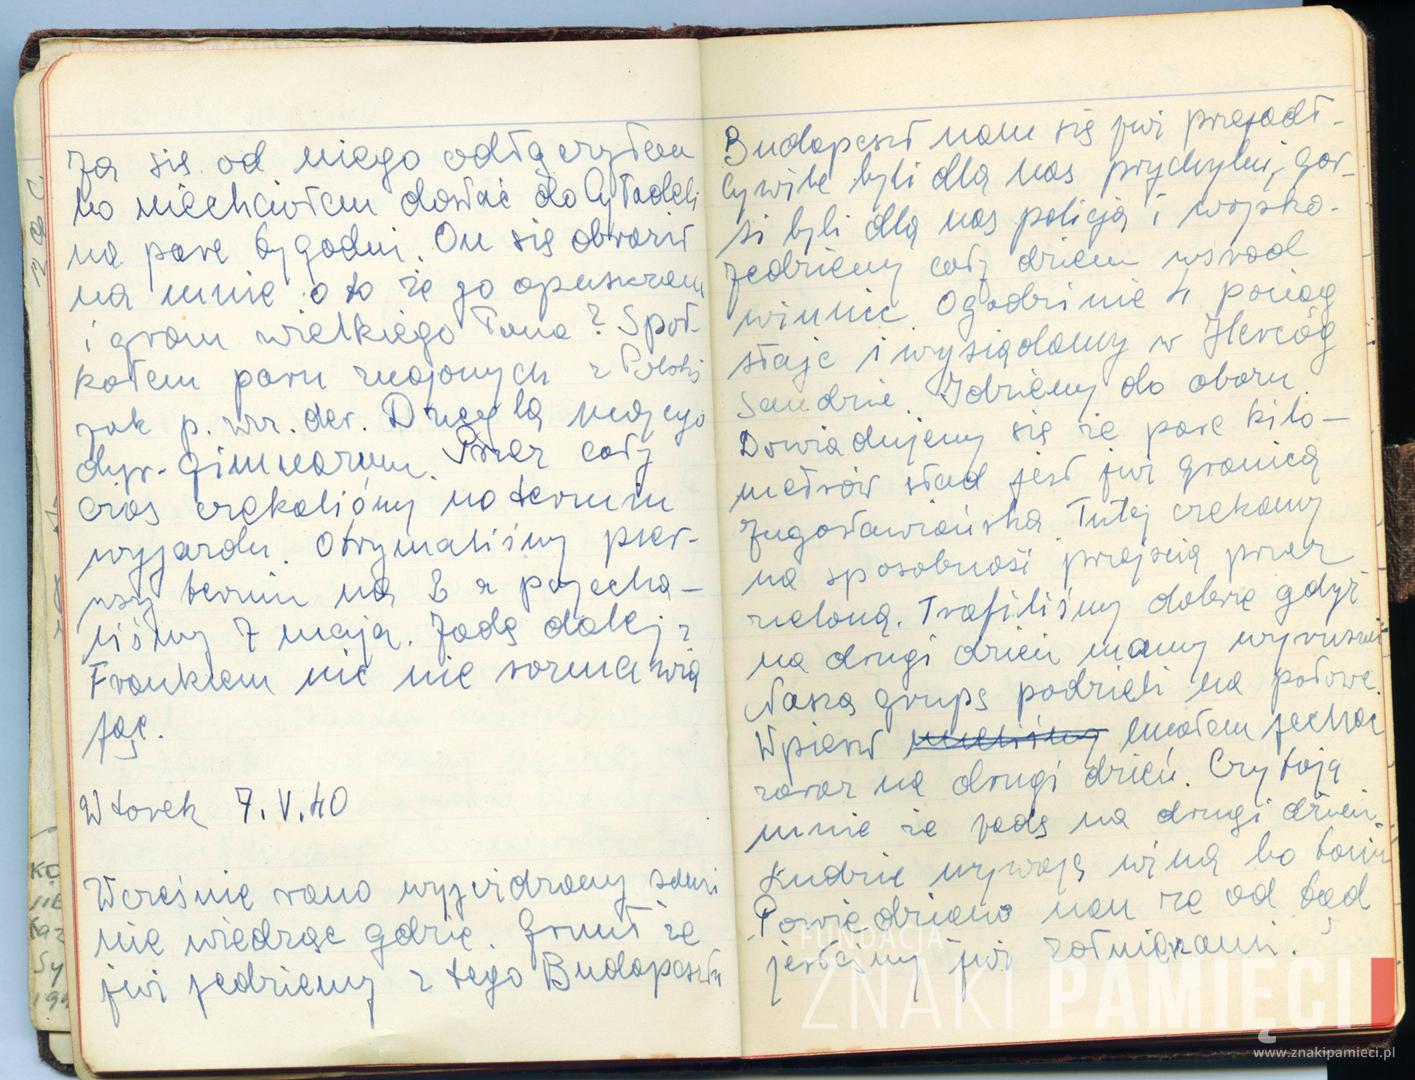 Ja się od niego odłączyłem
bo niechciałem dostać do Cytadeli
na parę tygodni. On się obraził
na mnie o to że go opuszczam
i gram wielkiego Pana? Spot-
kałem paru znajomych z Polski
jak p. wr. der. mojego
dyr. gimnazum. Przez cały
czas czekaliśmy na termin
wyjazdu. Otrzymaliśmy pier-
wszy termin na a pojecha-
liśmy 7 maja. Jadę dalej z
Frankiem nic nie rozmawia
jąc.
Wtorek 7.V.40
Wcześnie rano wyjeżdżamy sami
nie wiedząc gdzie. Grunt że
już jedziemy z tego Budapesztu
Budapeszt nam się już przejadł.
Cywile byli dla nas przychylni, gor-
si byli dla nas policja i wojsko.
Jedziemy cały dzień wsrod
winnic. Ogodzinie 4 pociąg
staje i wysiadamy w Hercóg
Sandrie. Idziemy do obozu.
Dowiadujemy się że pare kilo-
metrów stad jest już granica
Jugosławiańska. Tutej czekamy
na sposobnosć przejscia przez
zieloną. Trafiliśmy dobrze gdyż
na drugi dzien mamy wyruszać
Nasza grupę podzieli na połowę.
Wpierw miałem jechać
zaraz na drugi dzień. Czytają
mnie że jadę na drugi dzien.
Ludzie wina bo
Powiedziano nam że od tąd
jesteśmy już żołnierzami.
FUNDACJA
ZNAKI PAMIĘCI
www.znakipamieci.pl